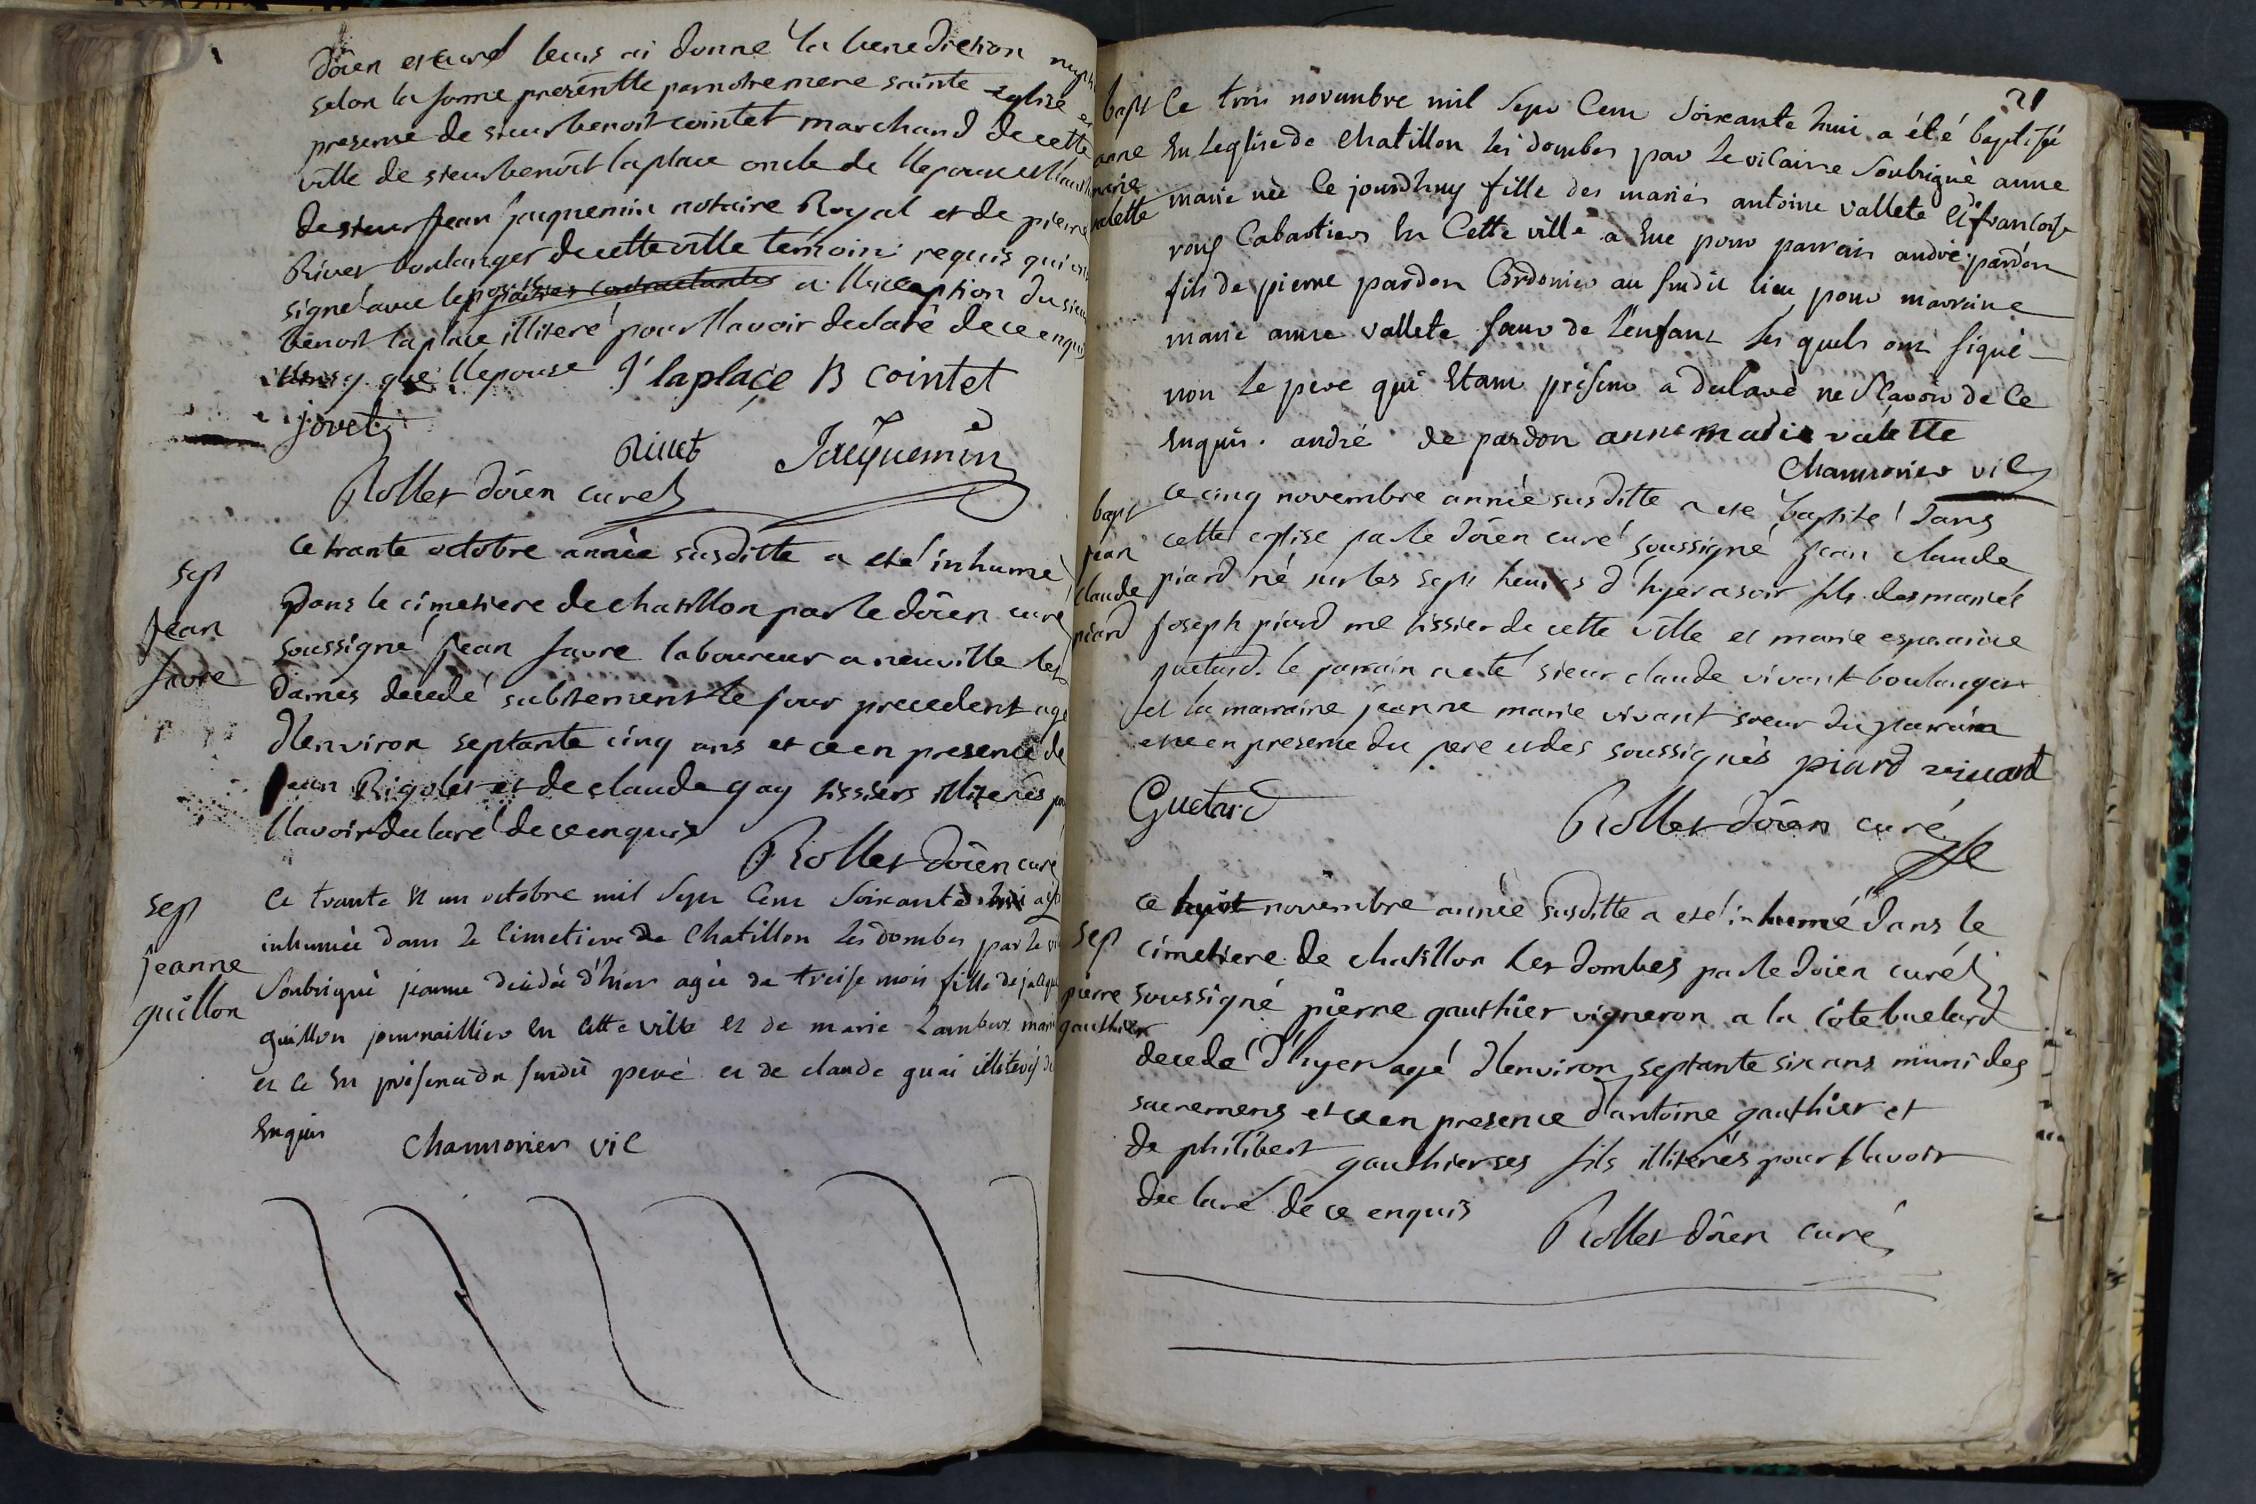 Doïen et curé leurs ai donné la benediction
selon la forme presentte par notre mere sainte Eglise
presence de sieur benoit cointet marchand de cette
ville de sieur benoit la place oncle de llepouse
de sieur jean jaquemin notaire Royal et de pierre
River boulanger de cette ville temoins requis qui
signé avec les parties contractantes a llexception du sieur
benoit la place illiteré pour llavoir declaré de ce enquis
que llepouse J laplaçe B cointet
jovet
Rivet Jacquemin
Rollet Doïen curé
sep
jean
favre
ce trante octobre année susditte a eté inhumé
Dans le cimetiere de chatillon par le Doïen curé
soussigné jean favre laboureur a neuville les
Dames decedé subitement le jour precedent agé
d'lenviron septante cinq ans et ce en presence de
jean Rigolet et de claude gay tissiers illiterés
llavoir declaré de ce enquis
Rollet Doïen curé
sep
jeanne
guillon
Ce trante et un octobre mil sept Cent soixante huit
inhumée dans le Cimetiere de Chatillon les Dombes par le
soubsigné jeanne decedée d'hier agée de treise mois fille de
guillon journaillier en Cette ville et de marie
et Ce en presence du susdit pere et de claude guai illiterés
Enquis Chamorier vic
21
bapt
anne
marie
valette
Ce trois novembre mil sept Cent soixante huit a été baptisée
En Leglise de Chatillon les dombes par le vicaire soubsigné anne
marie née Ce jourdhuy fille des mariés antoine vallete et francoise
Cabartiers En Cette ville a Eue pour parrain andré pardon
fils de pierre pardon Cordonier au susdit lieu pour marraine
marie anne vallete soeur de l'enfant les quels ont signé
non le pere qui Etant présent a declaré ne scavoir de Ce
Enquis. andré de pardon anne marie valette
Chamorier vic
bapt
jean
claude
piard
ce cinq novembre année susditte a eté baptisé Dans
cette eglise par le Doïen curé soussigné jean claude
piard né sur les sept heures d'hyer a soir fils des mariés
joseph piard me tissier de cette ville et marie
guetard. le parrain a eté sieur claude vivant boulanger
et la marraine jeanne marie vivant soeur du parrain
et ce en presence du pere et des soussignés piard vivant
Guetard Rollet Doïen curé
sep
pierre
gauthier
ce huit novembre année susditte a eté inhumé Dans le
cimetiere de chatillon les dombes par le doien curé
soussigné pierre gauthier vigneron a la cote buelard
decedé d'hyer agé d'lenviron septante six ans muni des
sacremens et ce en presence d'antoine gauthier et
de philibert gauthier ses fils illiterés pour llavoir
declaré de ce enquis Rollet Doïen curé